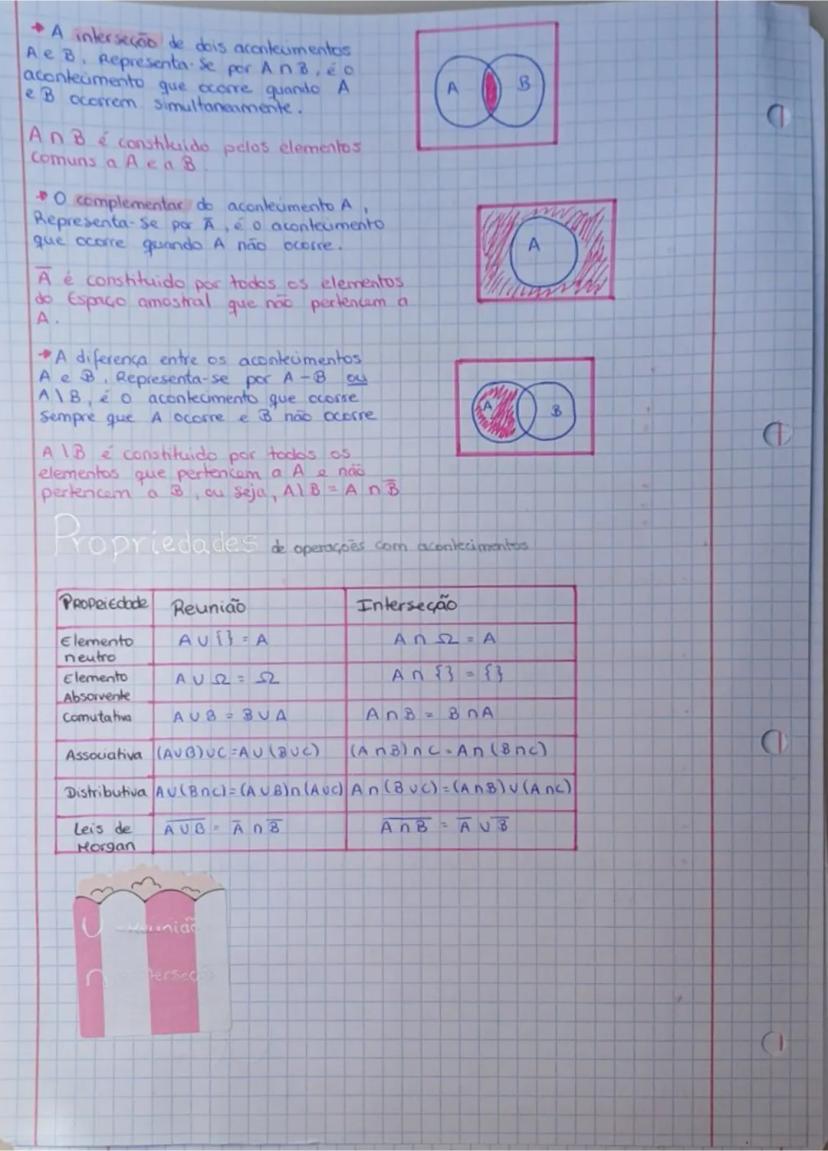 → A interseção de dois acontecimentos
A e B. Representa-se por A ∩ B, é o
acontecimento que ocorre quando A
e B ocorrem simultaneamente.
A ∩ B é constituido pelos elementos
comuns a A e a B
A B
→ O complementar do acontecimento A,
Representa-se por A̅, é o acontecimento
que ocorre quando A não ocorre.
A̅ é constituido por todos os elementos
do Espaço amostral que não pertencem a
A.
A
→ A diferença entre os acontecimentos
A e B. Representa-se por A-B ou
A\B, é o acontecimento que ocorre
sempre que A ocorre e B não ocorre
A\B é constituido por todos os
elementos que pertencem a A e não
pertencem a B, ou seja, A\B = A ∩ B̅
A B
Propriedades de operações com acontecimentos
Propriedade Reunião Interseção
Elemento neutro A ∪ {} = A A ∩ Ω = A
Elemento Absorvente A ∪ Ω = Ω A ∩ {} = {}
Comutativa A ∪ B = B ∪ A A ∩ B = B ∩ A
Associativa (A∪B)∪C=A∪(B∪C) (A∩B)∩C=A∩(B∩C)
Distributiva A∪(B∩C)=(A∪B)∩(A∪C) A∩(B∪C)=(A∩B)∪(A∩C)
Leis de Morgan A̅∪̅B̅ = A̅ ∩ B̅ A̅∩̅B̅ = A̅ ∪ B̅
∪ reunião
∩ interseção